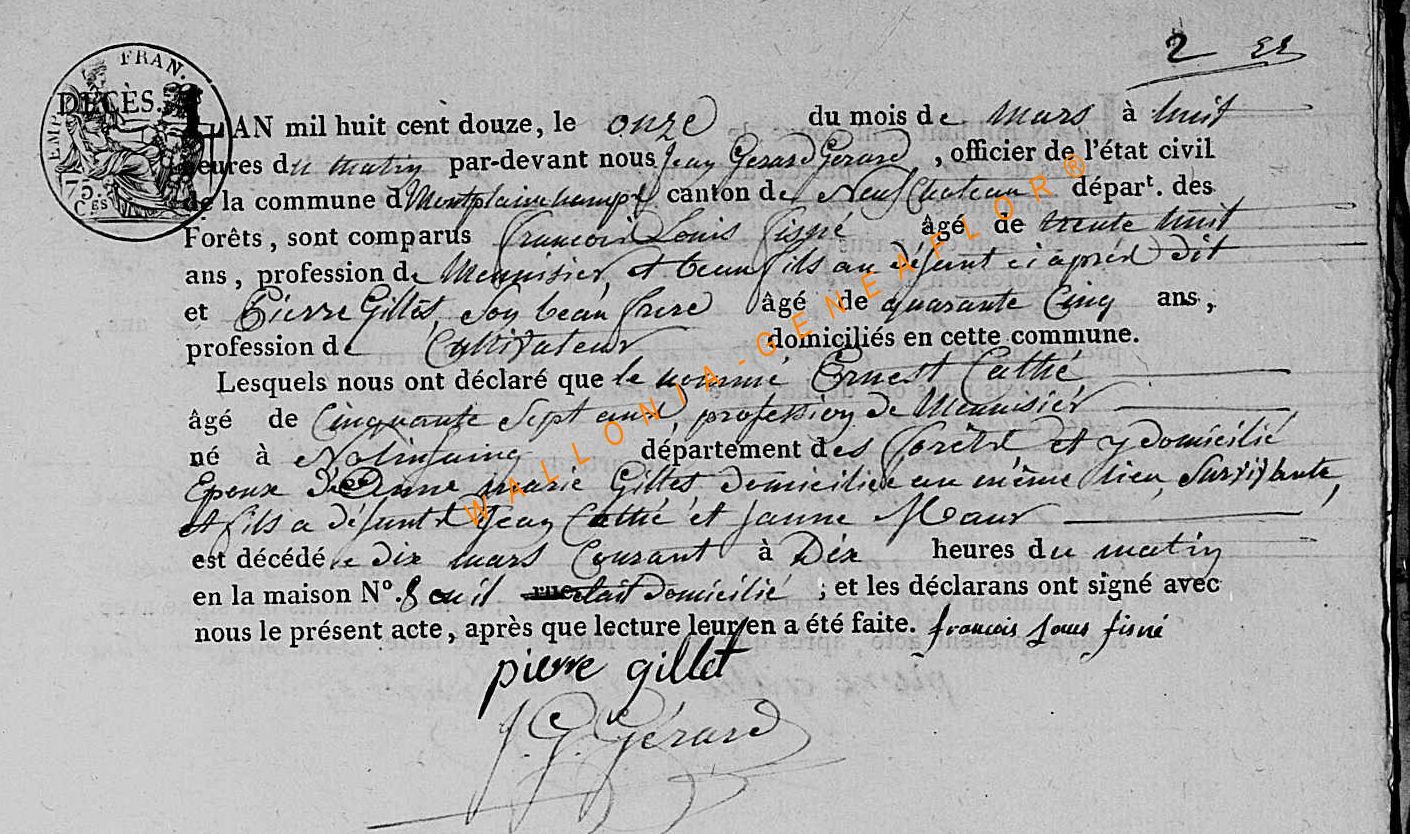 2
FRAN.
EMP
75
CES
DÉCÈS.
L'AN mil huit cent douze, le onze du mois de mars à huit
heures du matin par-devant nous Jean Gerard Gerard, officier de l'état civil
de la commune d' canton de Neufchateau départ. des
Forêts, sont comparus francois Louis fisné âgé de trente huit
ans, profession de Menuisier, et beau fils au défunt ci aprés dit
et Pierre Gillet, son beau frere âgé de quarante Cinq ans,
profession de Cultivateur domiciliés en cette commune.
Lesquels nous ont déclaré que le nommé Ernest Cathé
âgé de Cinquante Sept ans, profession de Menuisier
né à Nolinfaing département des forêts et y domicilié
Epoux d'Anne marie Gillet domiciliée au même lieu, Survivante,
et fils a défunts Jean Cathé et Janne
est décédé le dix mars Courant à Dix heures du matin
en la maison N°. 8 ou il rue etait domicilié ; et les déclarans ont signé avec
nous le présent acte, après que lecture leur en a été faite. francois Louis fisné
pierre gillet
J. G. Gérard
WALLONIA-GENEAFLOR®